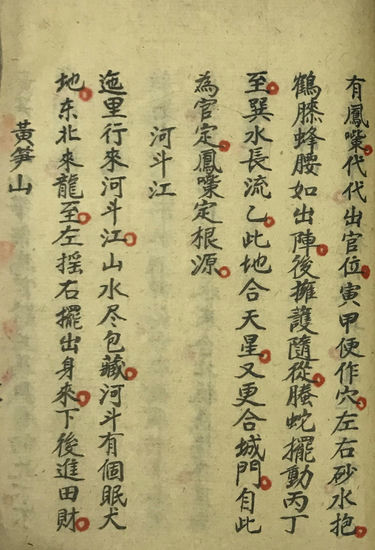 有鳳嘴代代出官位寅甲便作穴左右砂水抱
鶴膝蜂腰如出陣後擁護隨從螣蛇擺動丙丁
至巽水長流乙此地合天星又更合城門自此
為官定鳳嘴定根源
河斗江
迤里行來河斗江山水尽包藏河斗有個眠犬
地东北來龍至左摇右擺出身來下後進田財
黃笋山